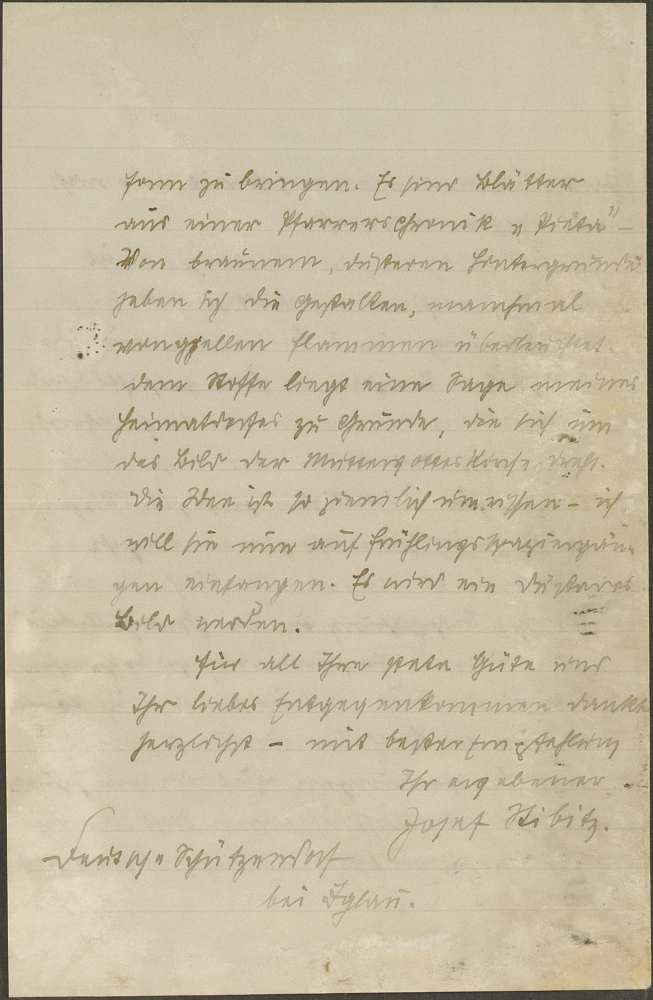 Form zu bringen. Es sind Blätter
aus einer Pfarrerschronik „Pieta" –
Von braunem, düsteren Hintergrunde
heben sich die Gestalten, manchmal
von grellen Flammen überleuchtet.
Dem Stoffe liegt eine Sage meines
Heimatdorfes zu Grunde, die sich um
das Bild der Muttergotteskirche dreht.
Die Idee ist so ziemlich umrissen – ich
will sie nun auf Frühlingsspaziergän-
gen einfangen. Es wird ein düsteres
Bild werden.
Für all Ihre stete Güte und
Ihr liebes Entgegenkommen dankt
herzlichst – mit bester Empfehlung
Ihr ergebener
Josef Stibitz.
Deutsch Schützendorf
bei Iglau.